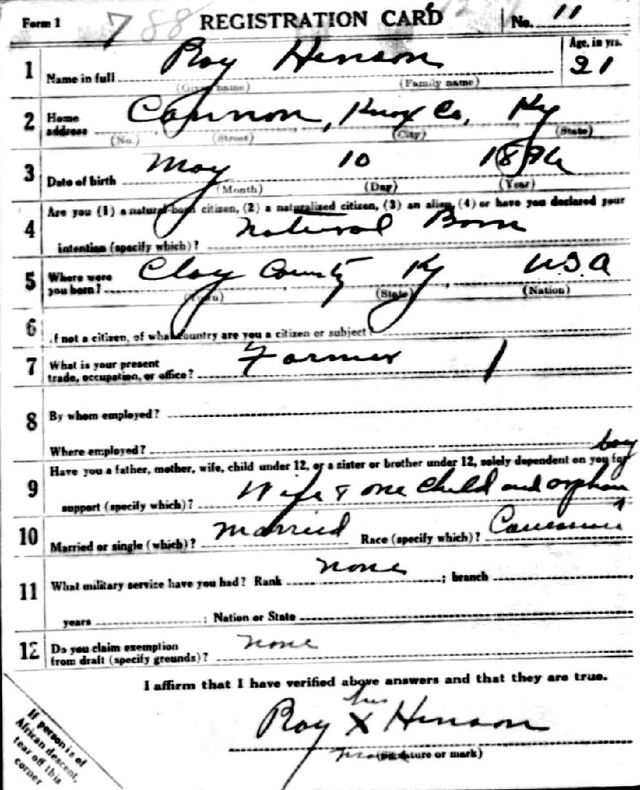 Form 1 788 REGISTRATION CARD No. 11
1 Name in full Roy Henson Age, in yrs. 21
(Given name) (Family name)
2 Home address Cannon, Knox Co, Ky
(No.) (Street) (City) (State)
3 Date of birth May 10 1896
(Month) (Day) (Year)
4 Are you (1) a natural-born citizen, (2) a naturalized citizen, (3) an alien, (4) or have you declared your
intention (specify which)? Natural Born
5 Where were you born? Clay County Ky U.S.A
(Town) (State) (Nation)
6 If not a citizen, of what country are you a citizen or subject?
7 What is your present trade, occupation, or office? Farmer
8 By whom employed?
Where employed?
9 Have you a father, mother, wife, child under 12, or a sister or brother under 12, solely dependent on you for
support (specify which)? Wife & one child and orphan boy
10 Married or single (which)? Married Race (specify which)? Caucasian
11 What military service have you had? Rank none ; branch
years ; Nation or State
12 Do you claim exemption from draft (specify grounds)? none
I affirm that I have verified above answers and that they are true.
his
Roy X Henson
mark
(Signature or mark)
If person is of
African descent,
tear off this
corner